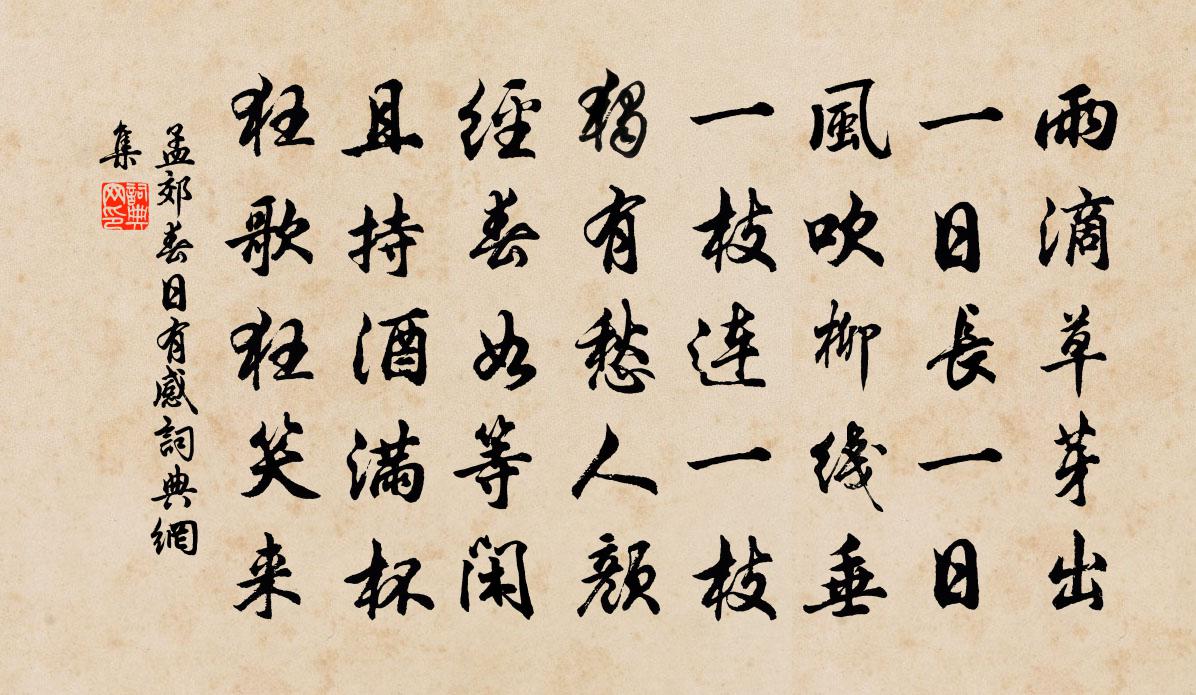 雨滴草芽出
一日長一日
風吹柳线垂
一枝连一枝
獨有愁人顏
經春如等闲
且持酒满杯
狂歌狂笑来
孟郊春日有感詞典網
集
詞典
网印